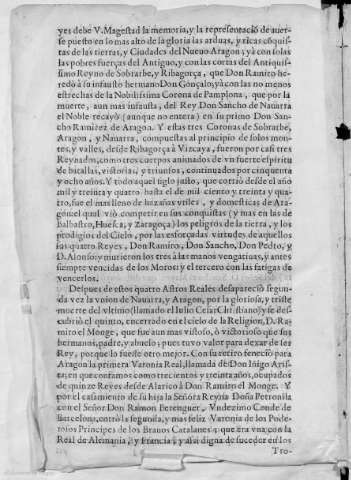 yes debe V. Magestad la memoria, y la representaciõ de auerse puesto en lo mas alto de la gloria las arduas, y ricas cõquistas de las tierras, y Ciudades del Nueuo Aragon; yà con solas
las pobres fuerças del Antiguo, y con las cortas del Antiquissimo Reyno de Sobrarbe, y Ribagorça, que Don Ramiro heredò à su infausto hermano Don Gonçalo; yà con las no menos
estrechas de la Nobilissima Corona de Pamplona, que por la
muerte, aun mas infausta, del Rey Don Sancho de Nauarra
el Noble recayò (aunque no entera) en su primo Don Sancho Ramirez de Aragon. Y estas tres Coronas de Sobrarbe,
Aragon, y Nauarra, compuestas al principio de solos montes, y valles, desde Ribagorça à Vizcaya, fueron por casi tres
Reynados, como tres cuerpos animados de vn fuerte espiritu
de batallas, victorias, y triunfos, continuados por cinquenta
y ocho años. Y todo aquel siglo justo, que corriò desde el año
mil y treinta y quatro hasta el de mil ciento y treinta y quatro, fue el mas lleno de hazañas vtiles, y domesticas de Aragon: el qual viò competir en sus conquistas (y mas en las de
Balbastro, Huesca, y Zaragoça) los peligros de la tierra, y los
prodigios del Cielo, por las esforçadas virtudes de aquellos
sus quatro Reyes, Don Ramiro, Don Sancho, Don Pedro, y
D. Alonso; y murieron los tres à las manos vengatiuas, y antes
siempre vencidas de los Moros; y el tercero con las fatigas de
vencerlos.
Despues de estos quatro Astros Reales desapareciò segunda vez la vnion de Nauarra, y Aragon, por la gloriosa, y triste
muerte del vltimo (llamado el Iulio Cesar Christiano) y se descubriò el quinto, encerrado en el cielo de la Religion, D. Ramiro el Monge, que fue aun mas vistoso, ò victorioso que sus
hermanos, padre, y abuelo; pues tuvo valor para dexar de ser
Rey, porque lo fuesse otro mejor. Con su retiro feneciò para
Aragon la primera Varonia Real, llamada de Don Iñigo Arista, en que contamos como trecientos y treinta años, ocupados
de quinze Reyes desde Alarico à Don Ramiro el Monge. Y
por el casamiento de su hija la Señora Reyna Doña Petronila
con el Señor Don Ramon Berenguer, Vndezimo Conde de
Barcelona, entrò la segunda, y mas feliz Varonia de los Poderosos Principes de los Brauos Catalanes; que era vna con la
Real de Alemania, y Francia; y assi digna de suceder en los
Tro-